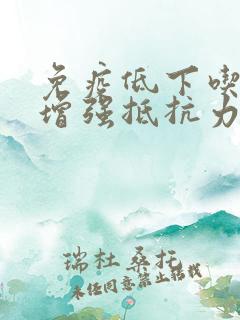 免疫低下喫
增强抵抗力
瑞杜桑托
未经同意禁止转载